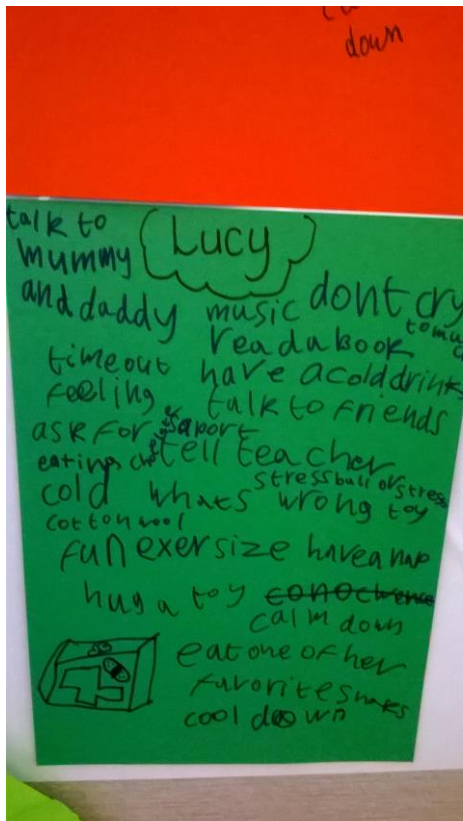 down
talk to
mummy
and daddy
Lucy
music
dont cry
to mu
read a book
timeout
have a cold drink
feeling
talk to friends
ask for saport
eating choclate
tell teacher
stress ball or stress
cold
whats wrong
toy
cotton wool
fun exersize
have a nap
hug a toy
calm down
eat one of her
favorite snaks
cool down